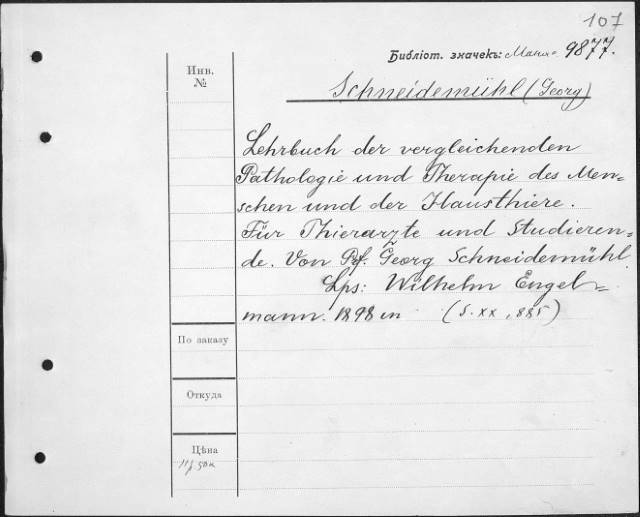 107
Библіот. значекъ: 9877.
Инв.
№
Schneidemühl (Georg)
Lehrbuch der vergleichenden
Pathologie und Therapie des Men=
schen und der Hausthiere.
Für Thierarzte und Studieren=
de. Von Prf. Georg Schneidemühl.
Lps: Wilhelm Engel=
mann. 1898 (S. XX, 885)
По заказу
Откуда
Цѣна